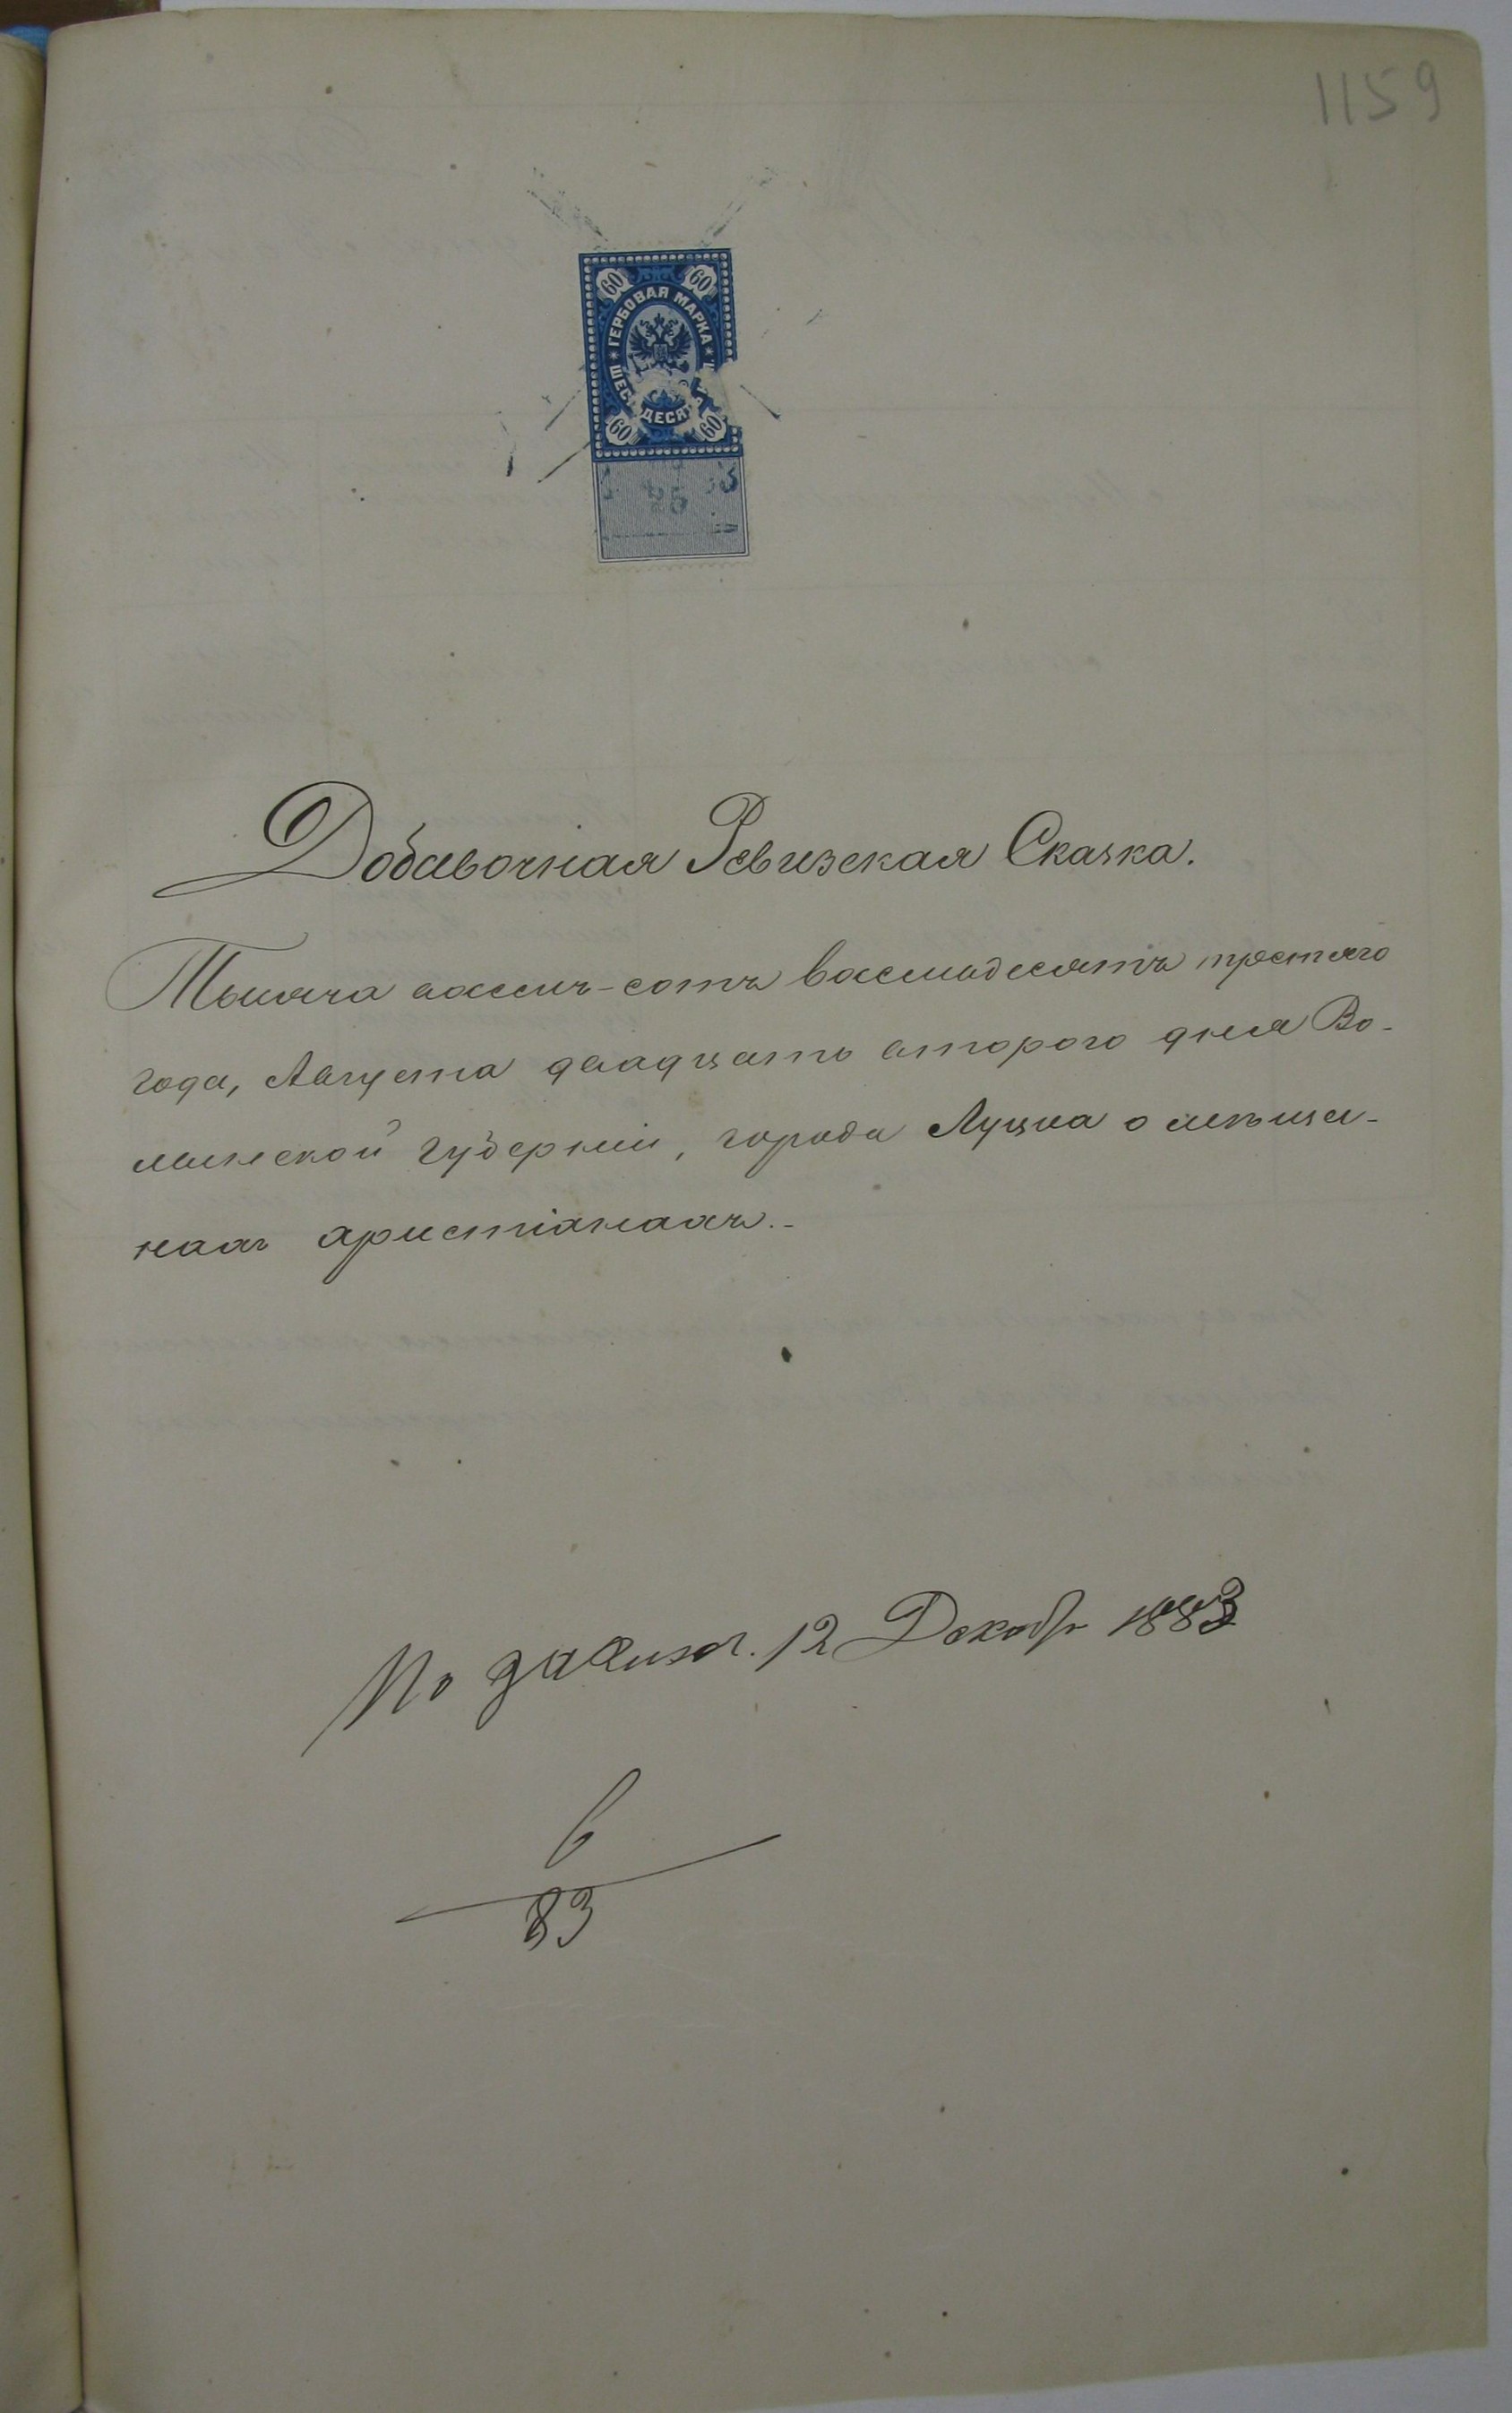 1159
60 60
ГЕРБОВАЯ МАРКА
60 60
Добавочная Ревизская Сказка.
Тысяча восемь-сотъ восемьдесятъ третьяго
года, Августа двадцать второго дня Во-
лынской губерніи, города Луцка о мѣща-
нахъ христіанахъ.-
По 12 Декабр 1883
6
83